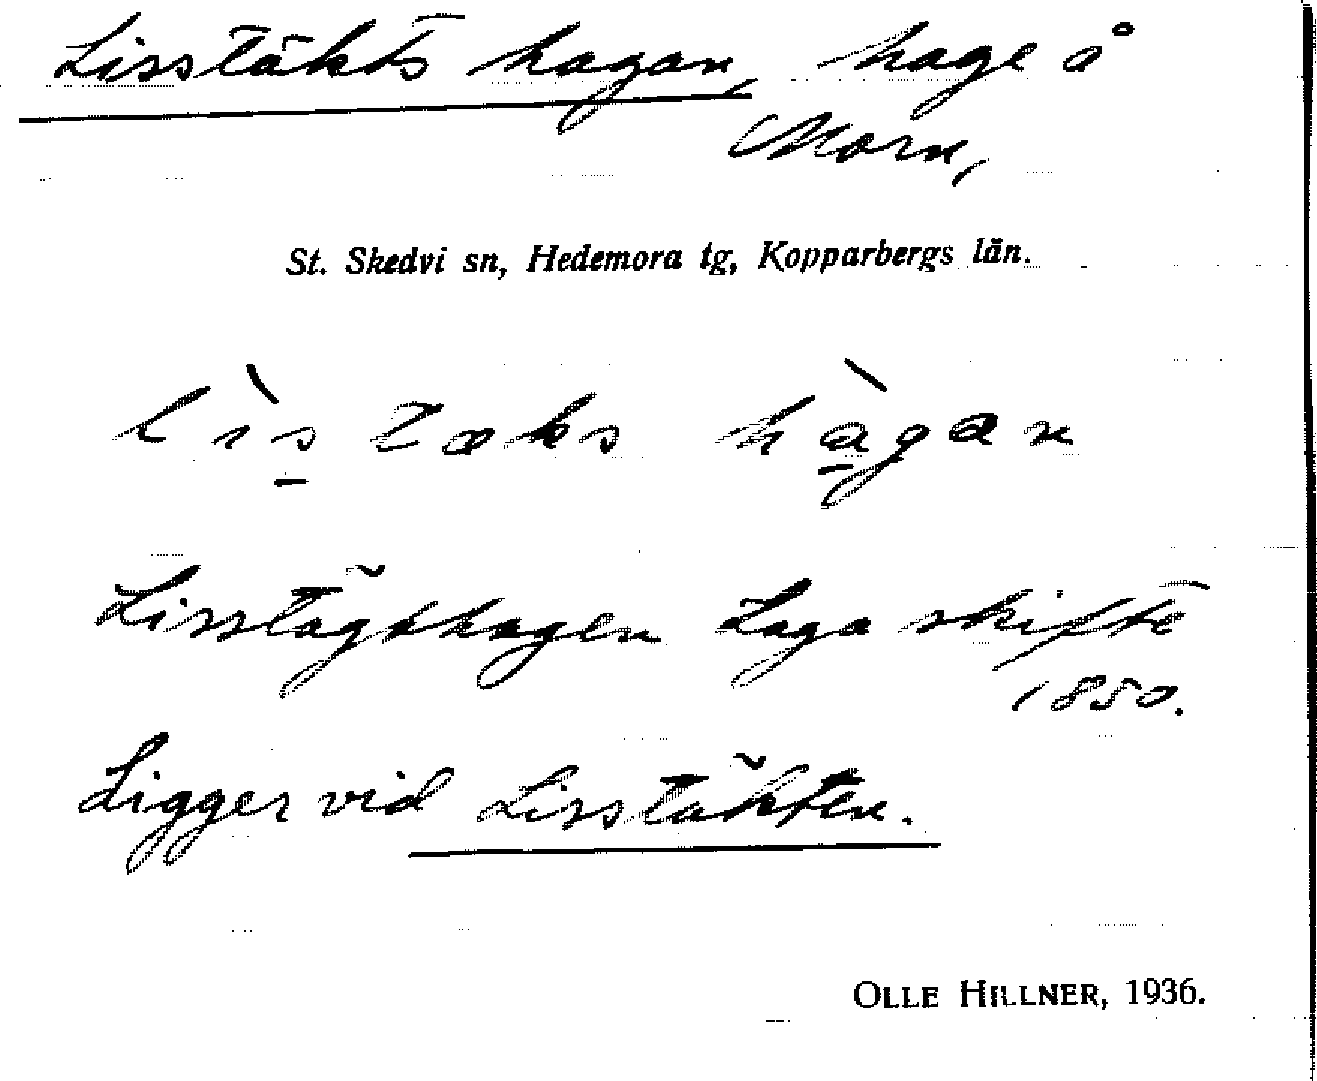 Lisstäkts hagan, hage å
Morn,
St. Skedvi sn, Hedemora tg, Kopparbergs län.
lìs tæks hàgan
Lisstägthagen Laga skifte
1850.
Ligger vid Lisstäkten.
OLLE HILLNER, 1936.